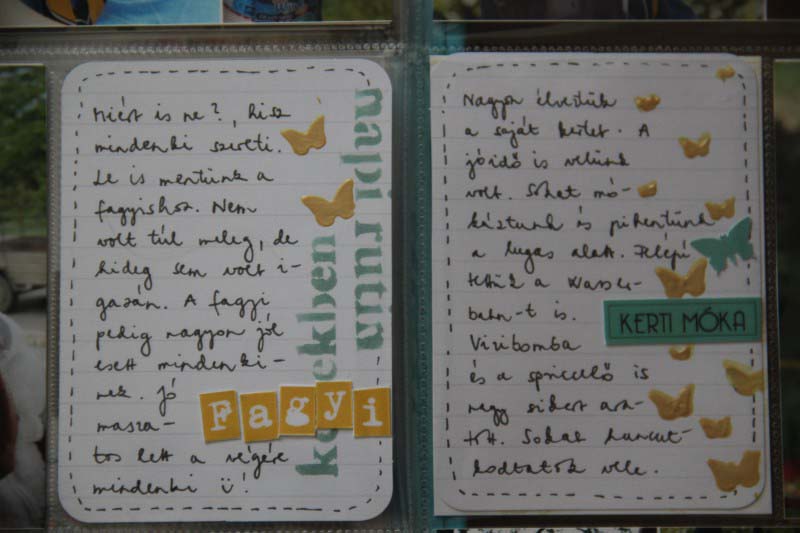 Miért is ne?, hisz
mindenki szereti.
Le is mentünk a
fagyishoz. Nem
volt túl meleg, de
hideg sem volt i-
gazán. A fagyi
pedig nagyon jól
esett mindenki-
nek. Jó
masza-
tos lett a végére
mindenki ü!
Fagyi
napi rutin
képekben
Nagyon élveztük
a saját kertet. A
jóidő is velünk
volt. Sokat mó-
káztunk és pihentünk
a lugas alatt. Felépí
tettük a Wasser-
bahn-t is.
KERTI MÓKA
Vizibomba
és a spriccelő is
nagy sikert ara-
tott. Sokat huncut-
kodtatok vele.